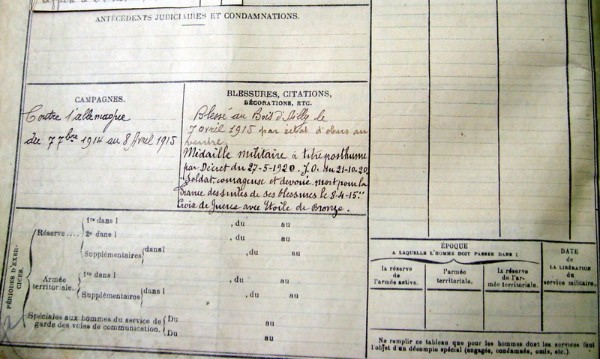 ANTÉCÉDENTS JUDICIAIRES ET CONDAMNATIONS.
CAMPAGNES.
Contre l'allemagne
du 7 7bre 1914 au 8 Avril 1915
BLESSURES, CITATIONS,
DÉCORATIONS, ETC.
Blessé au Bois d'Ailly le
7 avril 1915 par éclat d'obus au
ventre.
Médaille militaire à titre posthume
par Décret du 27-5-1920. J.O. du 21-10-20
"Soldat courageux et dévoué. mort pour la
France des suites de ses blessures le 8-4-15"
Croix de Guerre avec Etoile de Bronze.
PÉRIODES D'EXERCICES.
Réserve
1re dans l , du au
2e dans l , du au
Supplémentaires dans l , du au
, du au
Armée
territoriale.
1re dans l , du au
Supplémentaires dans l , du au
, du au
Spéciales aux hommes du service de
garde des voies de communication.
Du au
Du au
ÉPOQUE
A LAQUELLE L'HOMME DOIT PASSER DANS :
la réserve
de l'armée active.
l'armée
territoriale.
la réserve de l'ar-
mée territoriale.
DATE
DE LA LIBÉRATION
du
service militaire.
Ne remplir ce tableau que pour les hommes dont les services font
l'objet d'un décompte spécial (engagés, condamnés, omis, etc.)